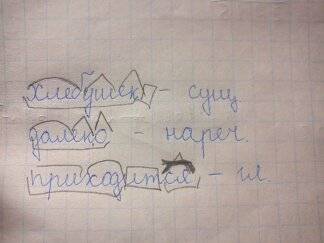 хлебушек - сущ
далеко - нареч.
приходится - гл.